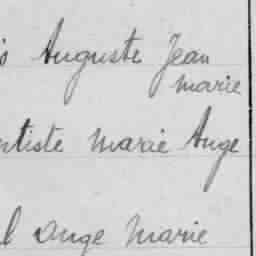 s Auguste Jean
marie
ntiste Marie Ange
l Ange Marie